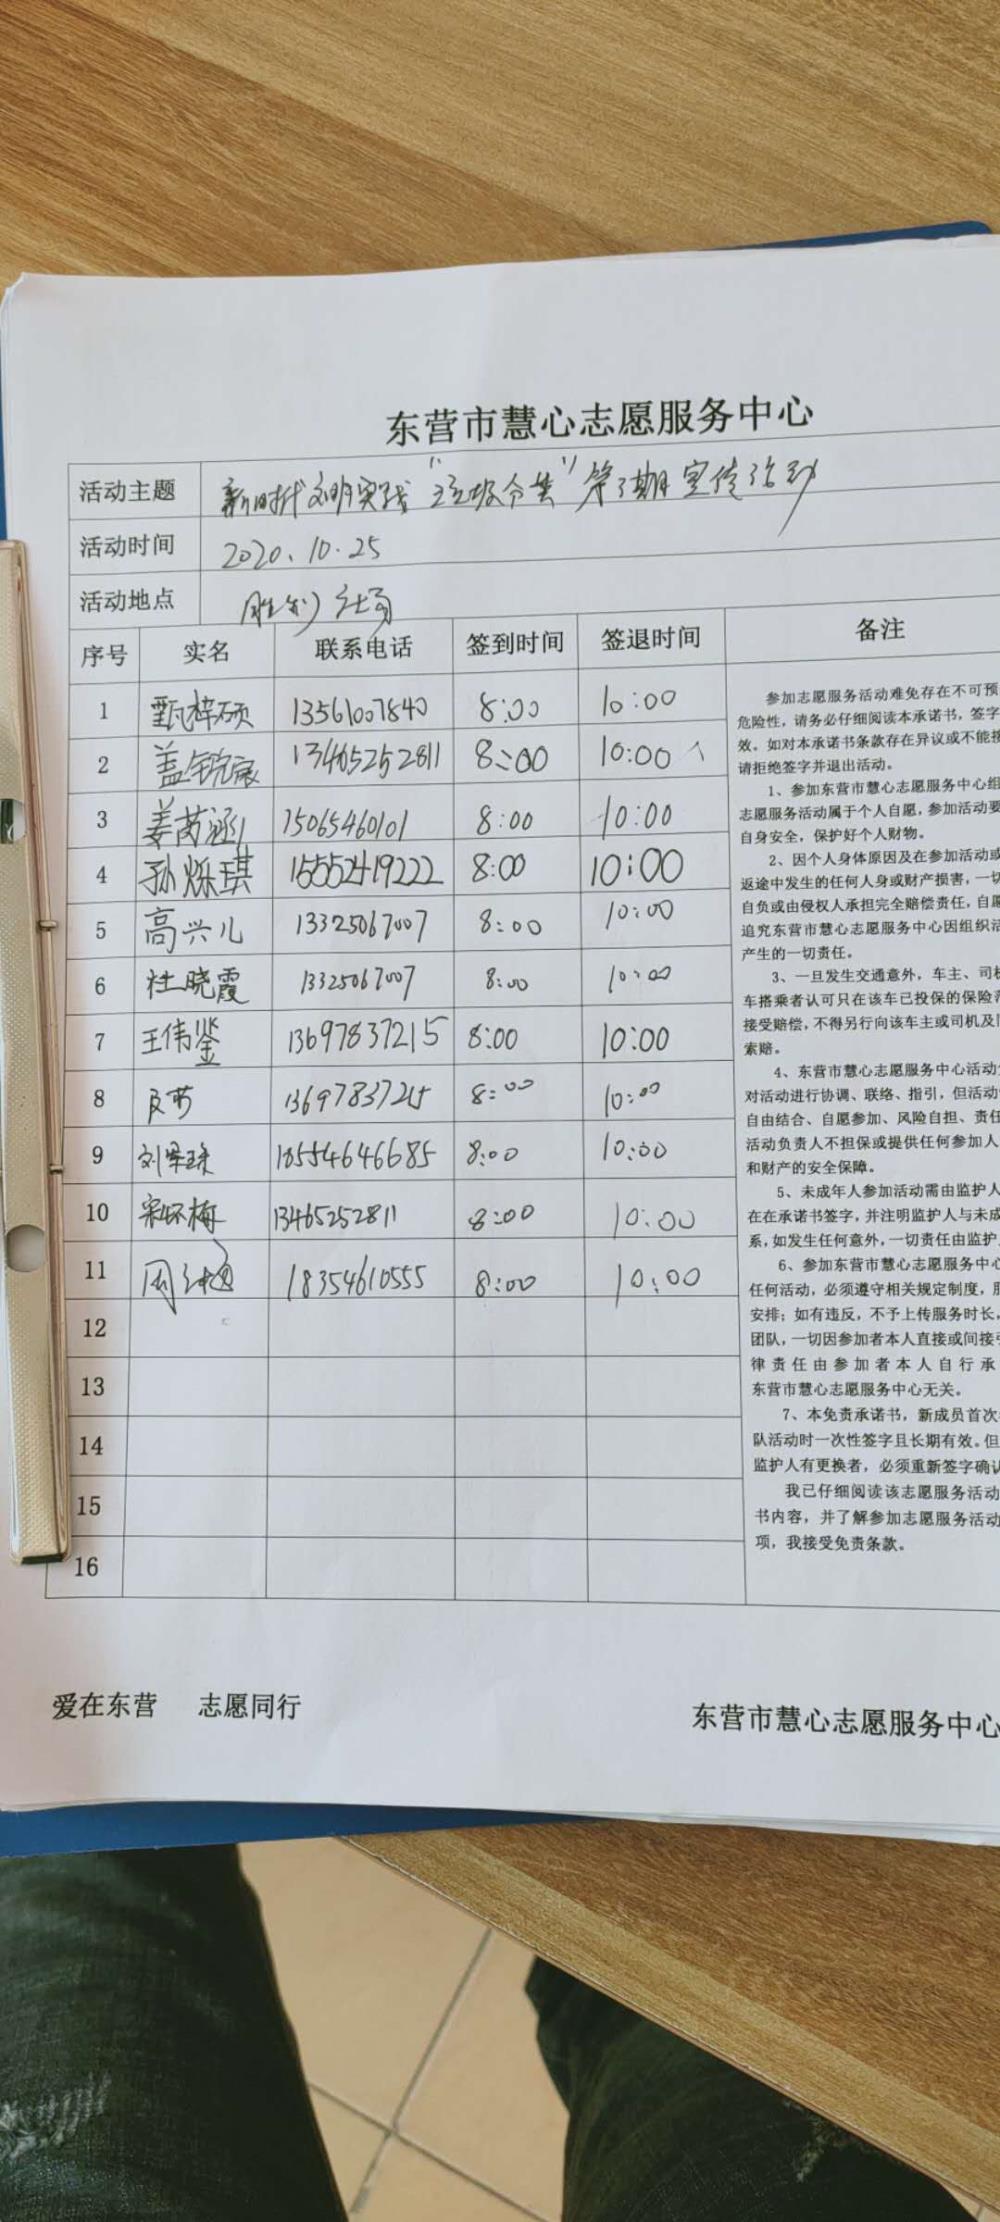 东营市慧心志愿服务中心
活动主题 新时代文明实践"垃圾分类"第3期宣传活动
活动时间 2020.10.25
活动地点 胜利
序号 实名 联系电话 签到时间 签退时间 备注
1 甄梓硕 13561007840 8:00 10:00
2 盖 13465252811 8:00 10:00
3 姜芮涵 15065460101 8:00 10:00
4 孙烁琪 15552419222 8:00 10:00
5 高兴儿 13325067007 8:00 10:00
6 杜晓霞 13325067007 8:00 10:00
7 王伟鉴 13697837215 8:00 10:00
8 13697837215 8:00 10:00
9 刘 18554646685 8:00 10:00
10 宋怀梅 13465252811 8:00 10:00
11 周 18354610555 8:00 10:00
12
13
14
15
16
参加志愿服务活动难免存在不可预
危险性，请务必仔细阅读本承诺书，签字
效。如对本承诺书条款存在异议或不能接
请拒绝签字并退出活动。
1、参加东营市慧心志愿服务中心组
志愿服务活动属于个人自愿，参加活动要
自身安全，保护好个人财物。
2、因个人身体原因及在参加活动或
返途中发生的任何人身或财产损害，一切
自负或由侵权人承担完全赔偿责任，自愿
追究东营市慧心志愿服务中心因组织活
产生的一切责任。
3、一旦发生交通意外，车主、司机
车搭乘者认可只在该车已投保的保险范
接受赔偿，不得另行向该车主或司机及
索赔。
4、东营市慧心志愿服务中心活动
对活动进行协调、联络、指引，但活动
自由结合、自愿参加、风险自担、责任
活动负责人不担保或提供任何参加人
和财产的安全保障。
5、未成年人参加活动需由监护人
在在承诺书签字，并注明监护人与未成
系，如发生任何意外，一切责任由监护
6、参加东营市慧心志愿服务中心
任何活动，必须遵守相关规定制度，服
安排；如有违反，不予上传服务时长，
团队，一切因参加者本人直接或间接
律责任由参加者本人自行承
东营市慧心志愿服务中心无关。
7、本免责承诺书，新成员首次
队活动时一次性签字且长期有效。但
监护人有更换者，必须重新签字确认
我已仔细阅读该志愿服务活动
书内容，并了解参加志愿服务活动
项，我接受免责条款。
爱在东营 志愿同行 东营市慧心志愿服务中心